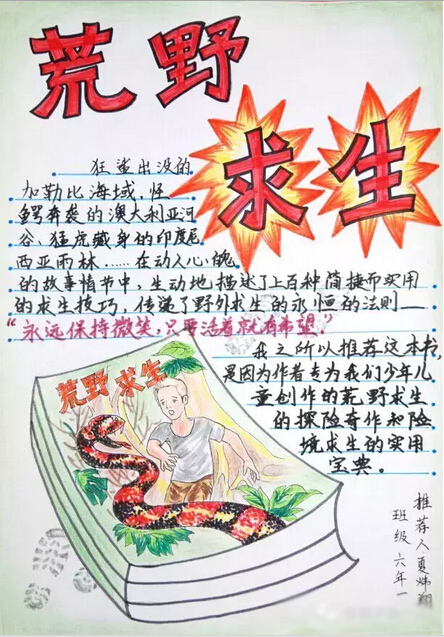 荒野
求生
狂鲨出没的
加勒比海域、怪
鳄奔袭的澳大利亚河
谷、猛虎藏身的印度尼
西亚雨林……在动人心魄
的故事情节中，生动地描述了上百种简捷而实用
的求生技巧，传递了野外求生的永恒的法则——
“永远保持微笑，只要活着就有希望。”
我之所以推荐这本书，
是因为作者专为我们少年儿
童创作的荒野求生
的探险奇作和险
境求生的实用
宝典。
荒野求生
推荐人夏炜翔
班级 六年一